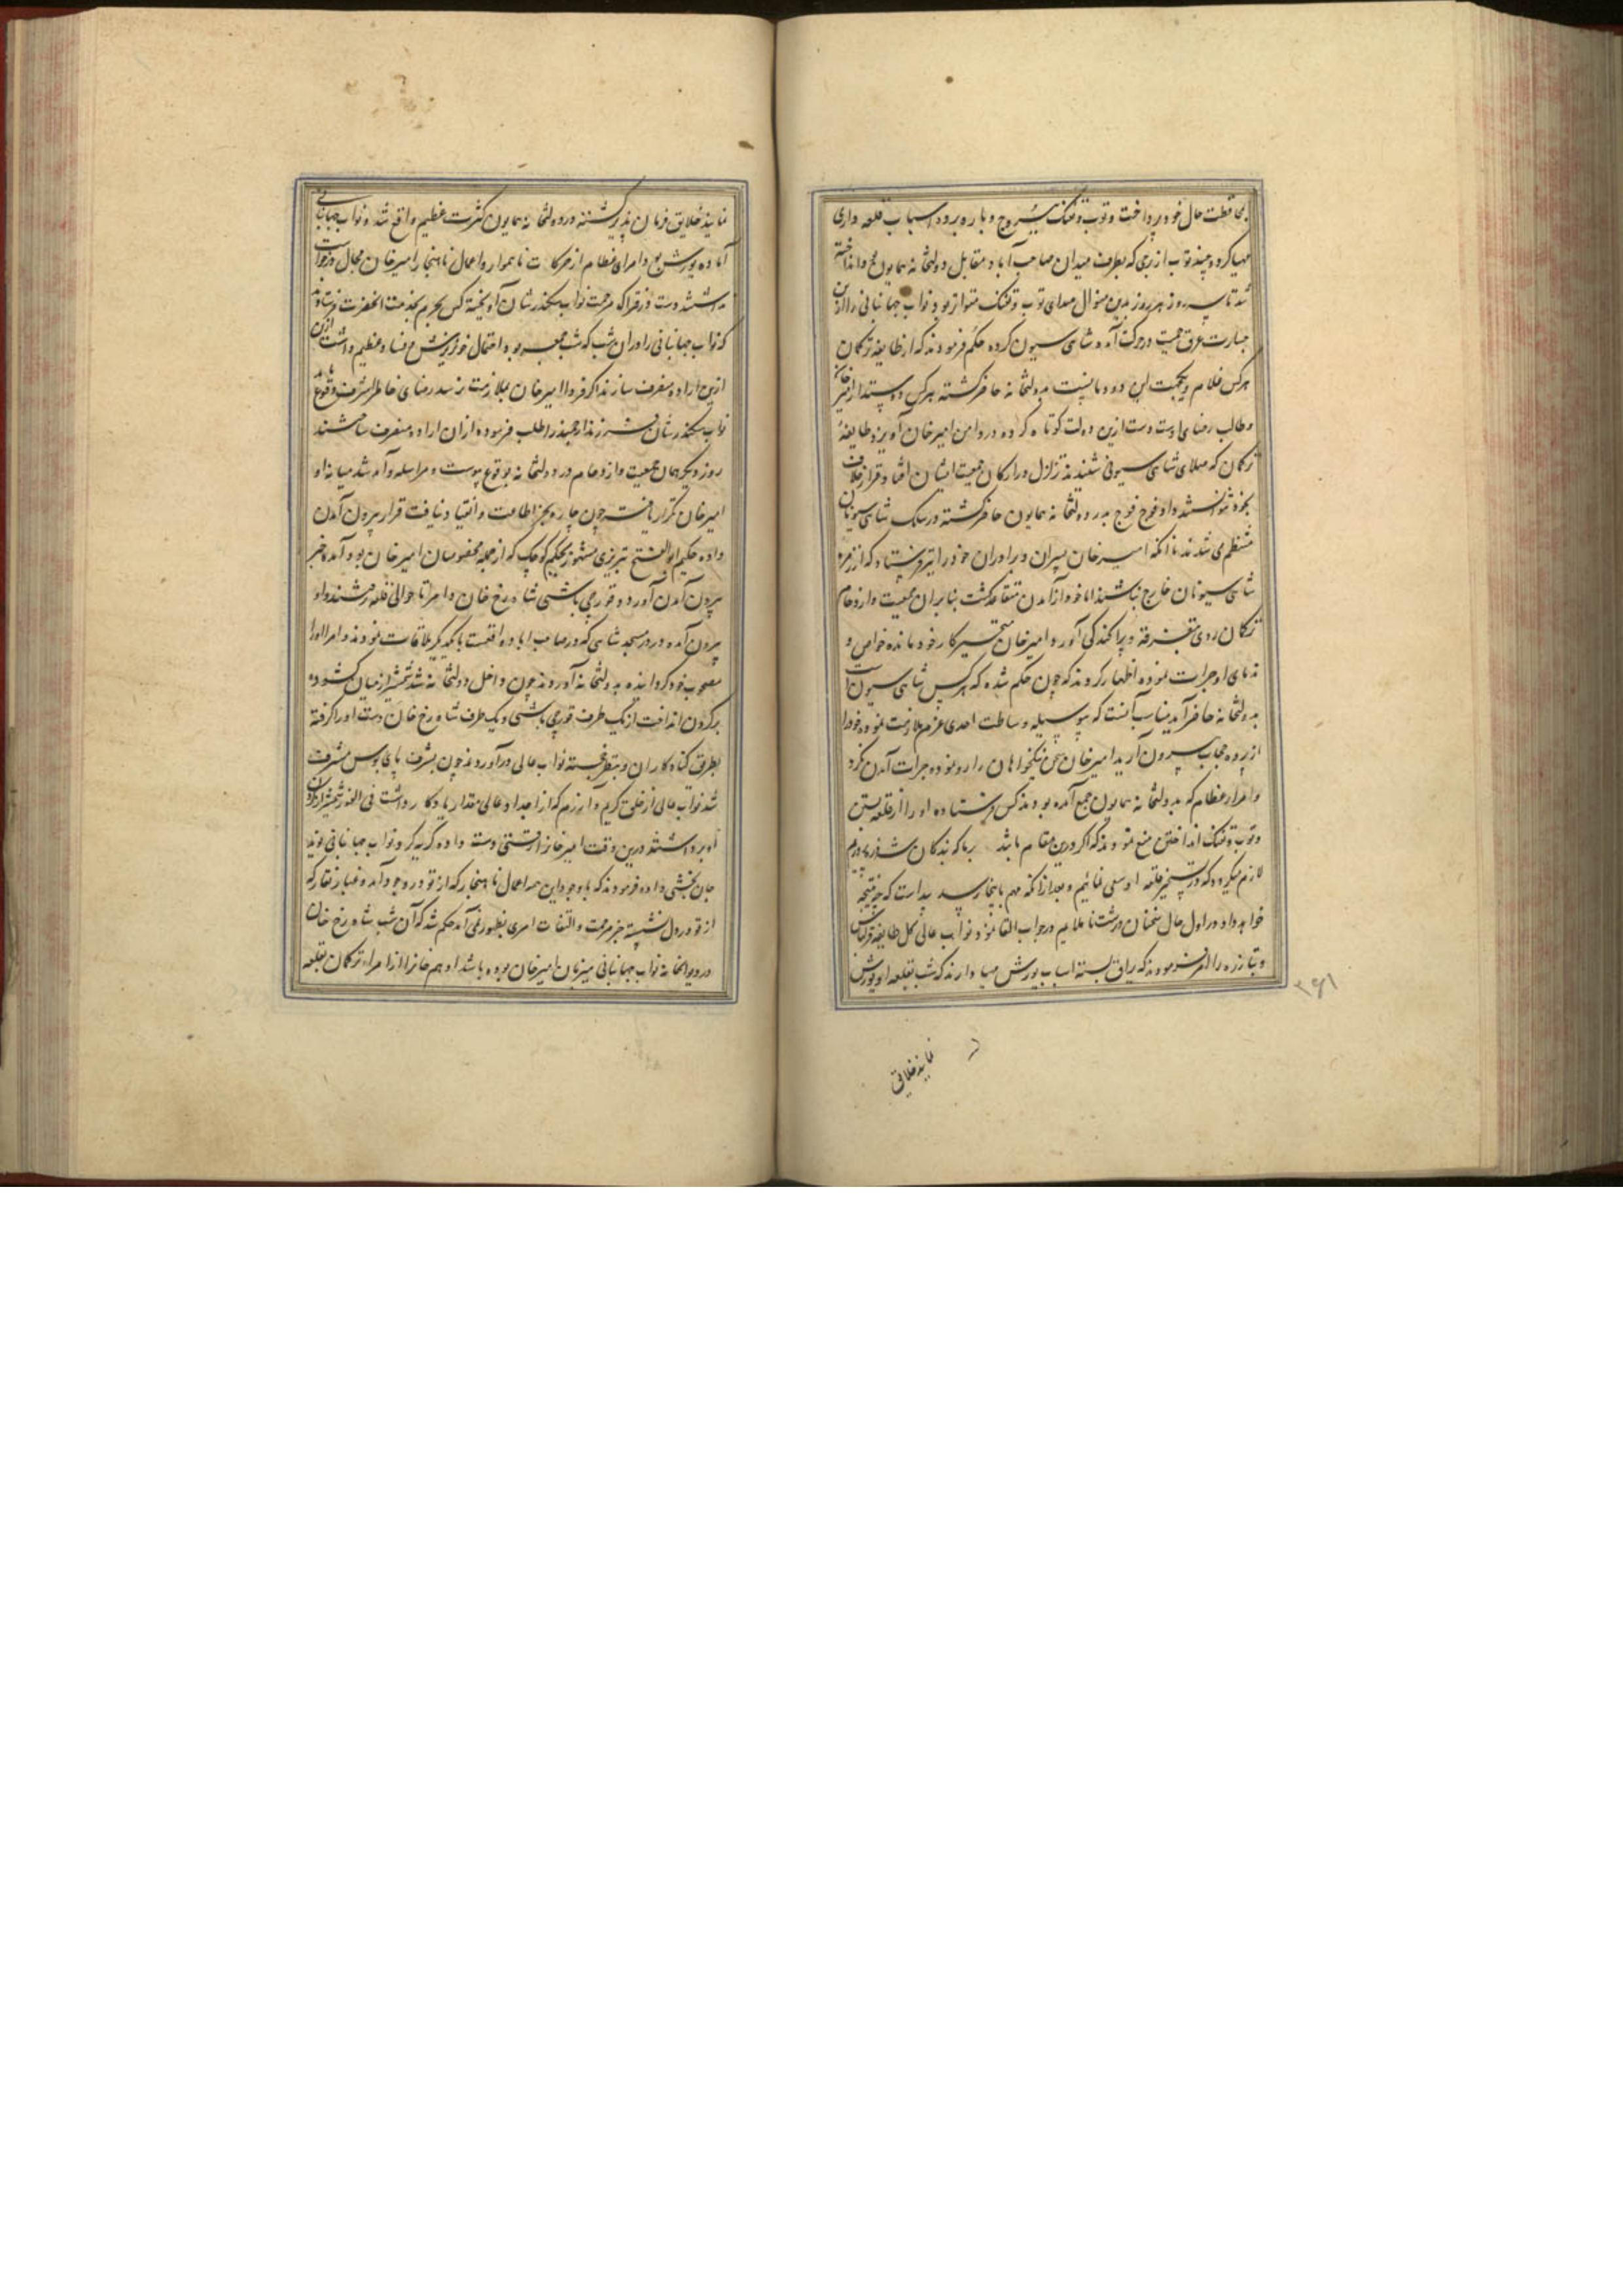 بمحافظت حال خود پرداخت و توپ و تفنگ ببروج و باره برده اسباب قلعه داری
مهیا کرد و چند توپ از برجی که بطرف میدان صاحب آباد و مقابل دولتخانه همایون بود انداخته
شد تا سه روز هر روز بدین منوال صدای توپ و تفنگ متواتر بود نواب جهانبانی را ازین
جسارت عرق حمیت در حرکت آمده شاهی سیون کرده حکم فرمودند که از طایفه ترکمان
هرکس غلام و یکجهت این دودمانست بدولتخانه حاضر گشته هرکس دوستدار امیر خان
و طالب رضای اوست دست ازین دولت کوتاه کرده در دامن امیرخان آویزد طایفهٔ
ترکمان که صلای شاهی سیونی شنیدند تزلزل در ارکان جمعیت ایشان افتاد قرار خلاف
بخود نتوانستند داد فوج فوج بدر دولتخانه همایون حاضر گشته در سلک شاهی سیونان
منتظم می شدند تا آنکه امیرخان پسران و برادران خود را نیز فرستاد که از زمره
شاهی سیونان خارج نباشند اما خود از آمدن متقاعد گشت بنابر آن جمعیت و ازدحام
ترکمان روی بتفرقه و پراکندگی آورد و امیرخان متحیر کار خود مانده خواص و
ندمای او جرات نموده اظهار کردند که چون حکم شده که هرکس شاهی سیون است
بدولتخانه حاضر آید مناسب آنست که بیوسیله و ساطت احدی عزم ملازمت نموده خود را
از پرده حجاب بیرون آرید امیرخان سخن نیکخواهان را رد نموده جرات آمدن نکرد
و امرا عظام که بدولتخانه همایون جمع آمده بودند کس فرستاده او را از قلعه بستن
و توپ و تفنگ انداختن منع نمودند که اگر درین مقام باشد بر ما که بندگان
لازم میگردد که در تسخیر قلعه او سعی نمائیم و بعد از آنکه مهم باینجا رسد پیداست که چه نتیجه
خواهد داد در اول حال سخنان درشت ناملایم در جواب القا نمود نواب عالی کل طایفه قزلباش
و تبارزه را امر فرمودند که یراق بسته اسباب یورش مهیا دارند که شب بقلعه او یورش
۳۶۱
نمایند خلایق
نمایند خلایق فرمان پذیر گشته در دولتخانه همایون کثرت عظیم واقع شد و نواب جهانبانی
آماده یورش بود امرای عظام از حرکات ناهموار و اعمال ناهنجار امیرخان مجال درخواست
نداشتند دست در فتراک مرحمت نواب سکندر شان آویخته کس بحرم بخدمت آنحضرت فرستادند
که نواب جهانبانی را در آن شب که شب جمعه بود احتمال خونریزش و فساد عظیم داشت ازین
ازین اراده منصرف سازند اگر فردا امیرخان بملازمت نرسد رضای خاطر اشرف وقوع یابد
نواب سکندر شان فرزند ارجمند را طلب فرموده از آن اراده منصرف ساختند
روز دیگر همان جمعیت و ازدحام در دولتخانه بوقوع پیوست و مراسله و آمد شد میانه او
امیرخان تکرار یافت چون چاره بجز اطاعت و انقیاد نیافت قرار بیرون آمدن
داده حکیم ابوالفتح تبریزی مشهور بحکیم کوچک که از جمله مخصوصان امیرخان بود آمده خبر
بیرون آمدن آورد و قورچی باشی شاهرخ خان و امرا تا حوالی قلعه رفتند و او
بیرون آمده در در مسجد شاهی که در صاحب اباد واقعست با یکدیگر ملاقات نمودند و امرا او را
مصحوب خود گردانیده بدولتخانه آوردند چون داخل دولتخانه شد شمشیر از میان گشوده
بر گردن انداخت از یک طرف قورچی باشی و یک طرف شاهرخ خان دست او را گرفته
بطریق گناه کاران بنظر خجسته نواب عالی درآوردند چون بشرف پای بوس مشرف
شد نواب عالی از خلق کریم و آزرم که از اجداد عالی مقدار یادگار داشت فی الفور شمشیر از گردن
او برداشتند درین وقت امیرخانرا رقتی دست داده گریه کرد نواب جهانبانی نوید
جان بخشی داده فرمودند که با وجود این همه اعمال ناهنجار که از تو در وجود آمد و غبار نقار که
از تو در دل نشسته جز مرحمت و التفات امری بظهور نمی آمد حکم شد که آن شب شاهرخ خان
در دیوانخانه نواب جهانبانی میزبان امیرخان بوده باشد ادهم خانرا از امراء ترکمان بقلعه